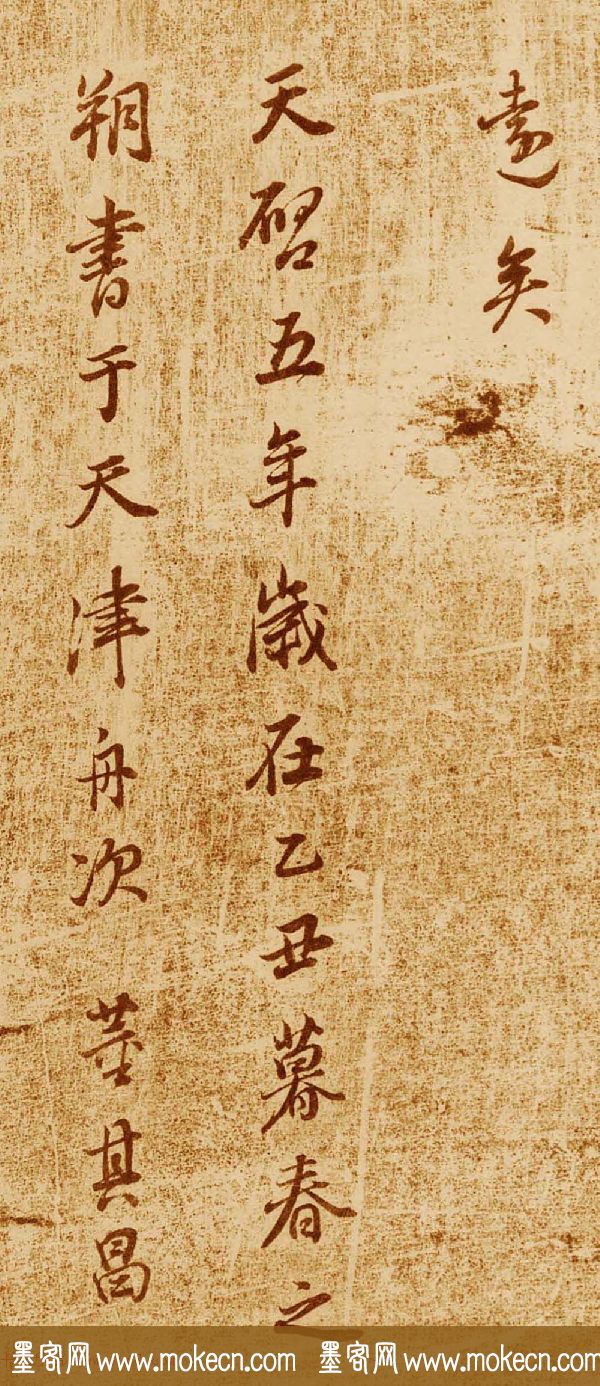 遠矣
天啓五年歲在乙丑暮春之
朔書于天津舟次 董其昌
墨客网 www.mokecn.com 墨客网 www.mokecn.com